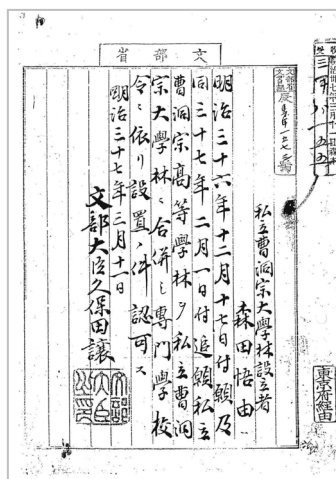 東京府経由
文部省
私立曹洞宗大學林設立者
森田悟由
明治三十六年十二月十七日付願及
同三十七年二月一日付追願私立
曹洞宗高等學林ヲ私立曹洞
宗大學林ニ合併シ專門學校
令ニ依リ設置ノ件認可ス
明治三十七年三月十一日
文部大臣久保田讓
文部大臣之印